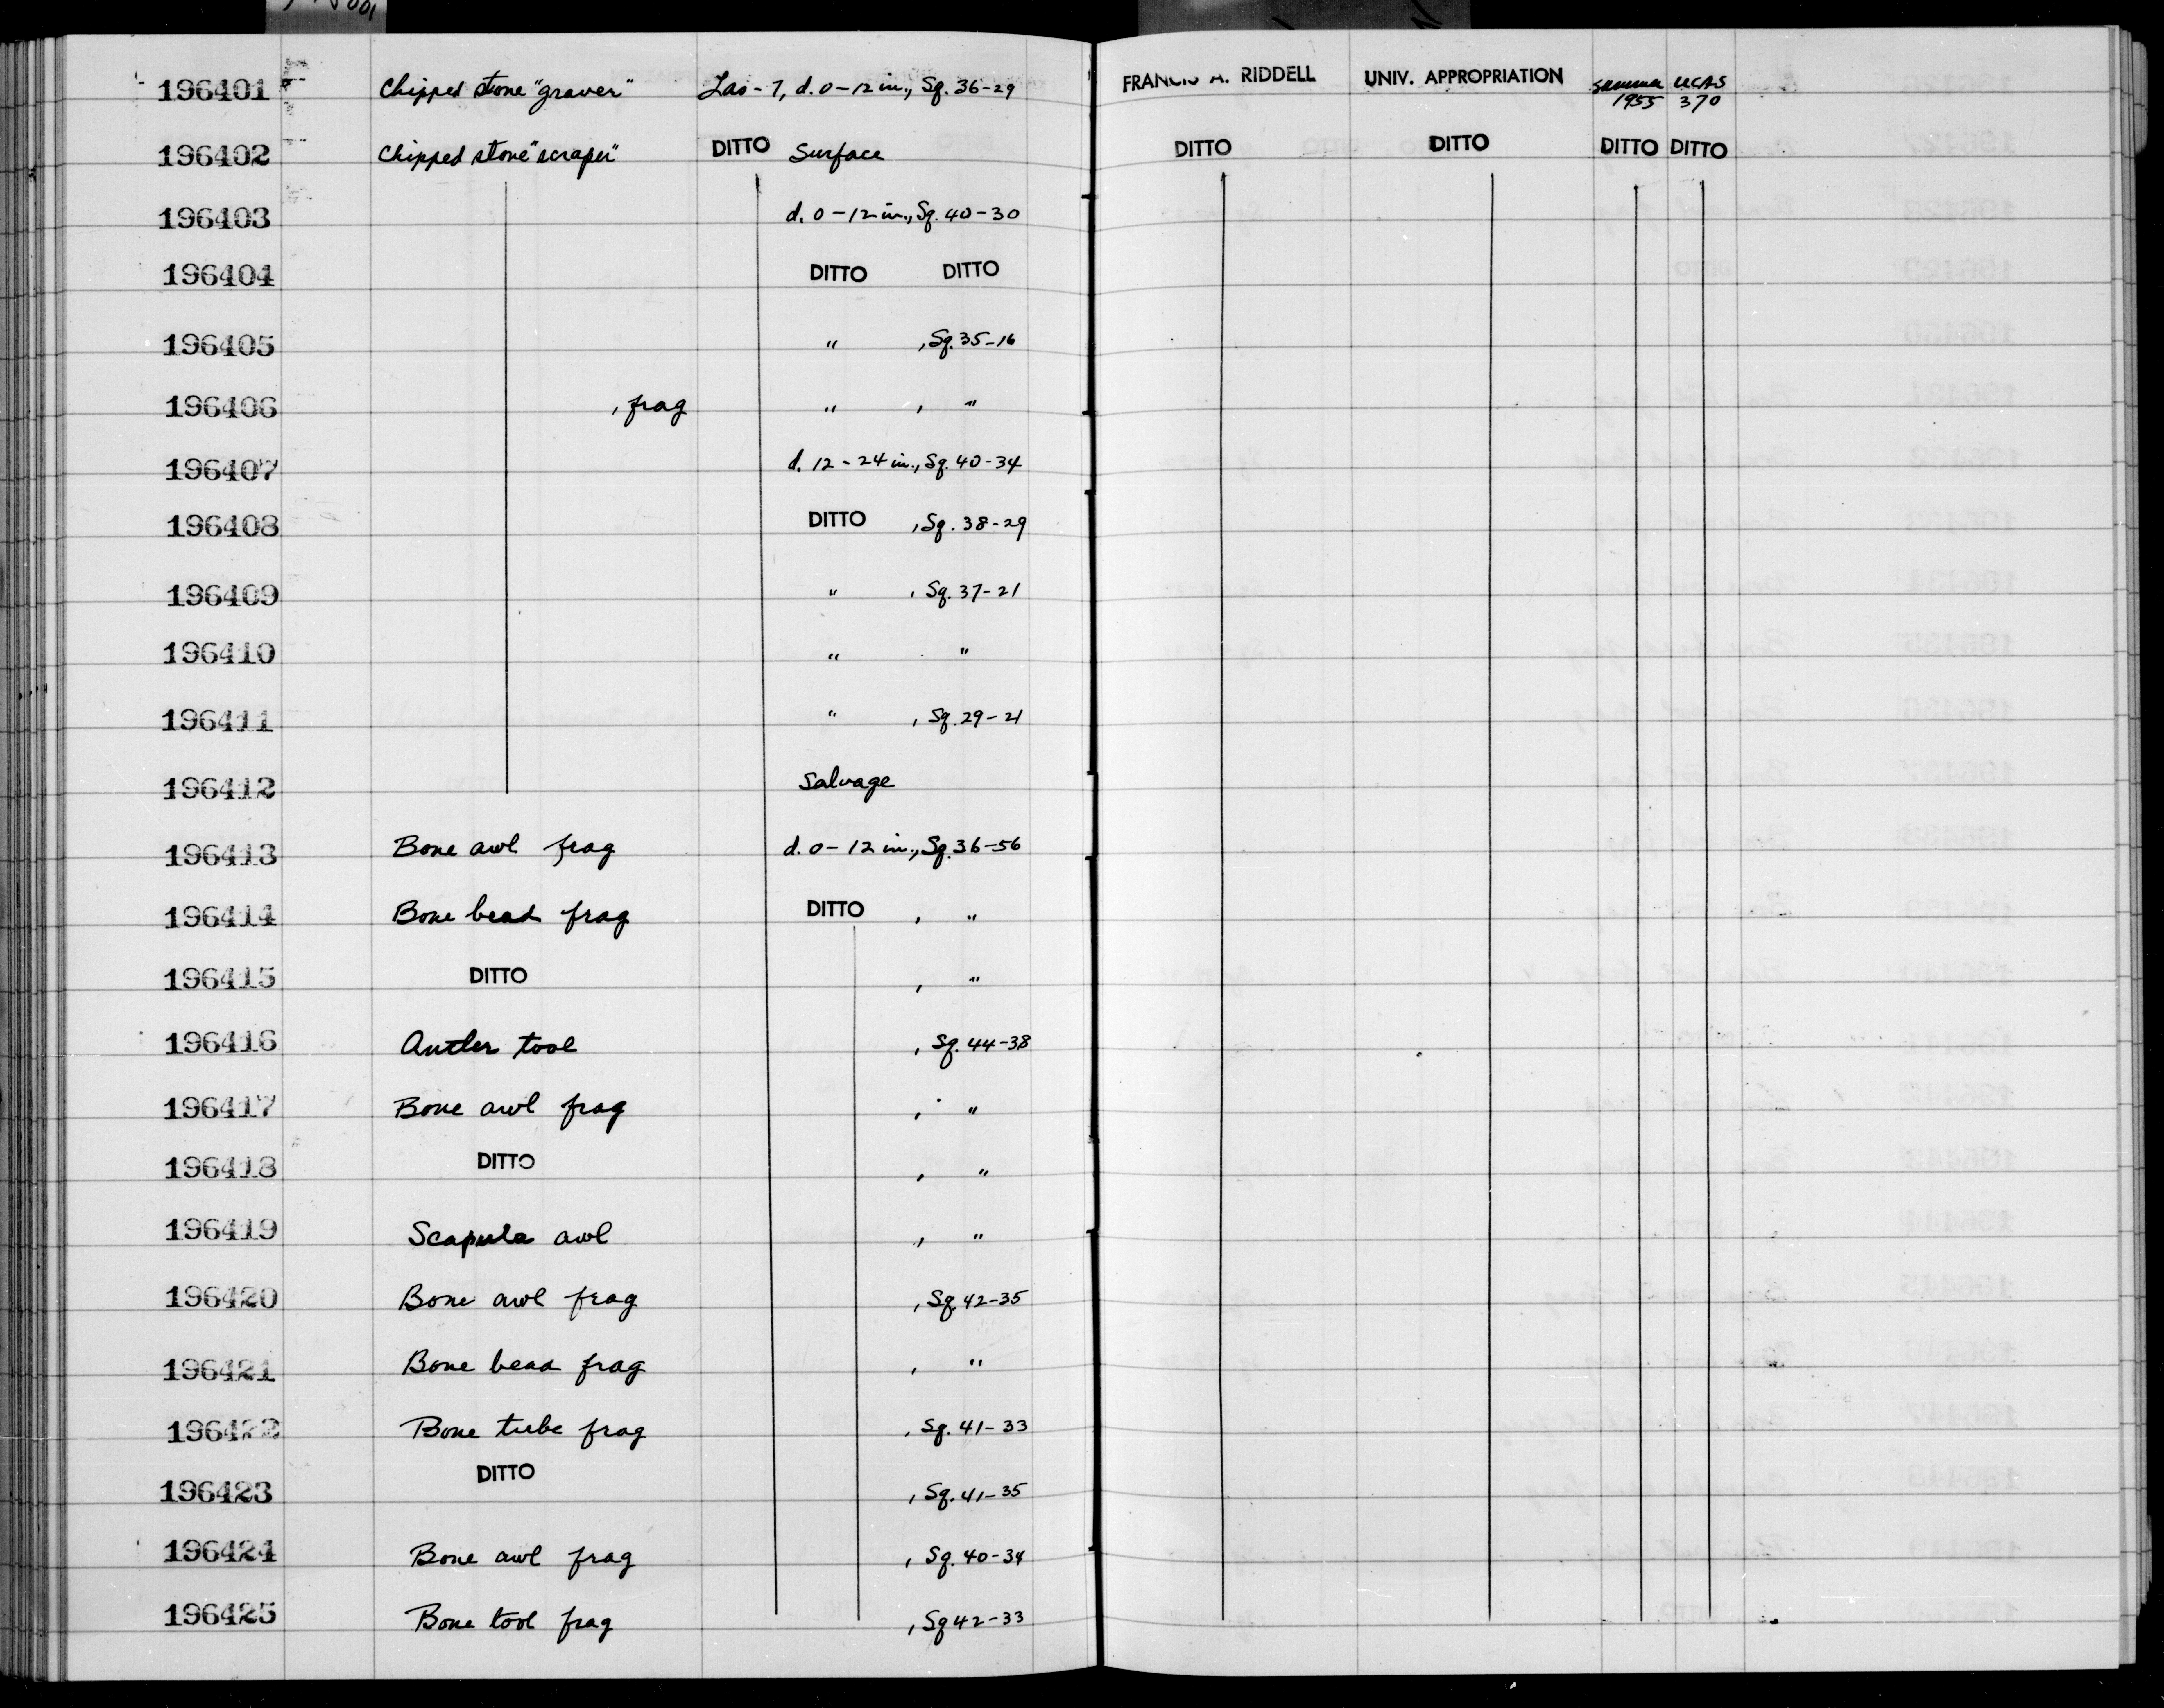 196401 Chipped stone "graver" Las-7, d. 0-12 in., Sq. 36-29 FRANCIS A. RIDDELL UNIV. APPROPRIATION Summer 1955 UCAS 370
196402 Chipped stone "scraper" DITTO Surface DITTO DITTO DITTO DITTO
196403 d. 0-12 in., Sq. 40-30
196404 DITTO DITTO
196405 " , Sq. 35-16
196406 , frag " , "
196407 d. 12-24 in., Sq. 40-34
196408 DITTO , Sq. 38-29
196409 " , Sq. 37-21
196410 " "
196411 " , Sq. 29-21
196412 Salvage
196413 Bone awl frag d. 0-12 in., Sq. 36-56
196414 Bone bead frag DITTO , "
196415 DITTO , "
196416 Antler tool , Sq. 44-38
196417 Bone awl frag , "
196418 DITTO , "
196419 Scapula awl , "
196420 Bone awl frag , Sq. 42-35
196421 Bone bead frag , "
196422 Bone tube frag , Sq. 41-33
196423 DITTO , Sq. 41-35
196424 Bone awl frag , Sq. 40-34
196425 Bone tool frag , Sq 42-33